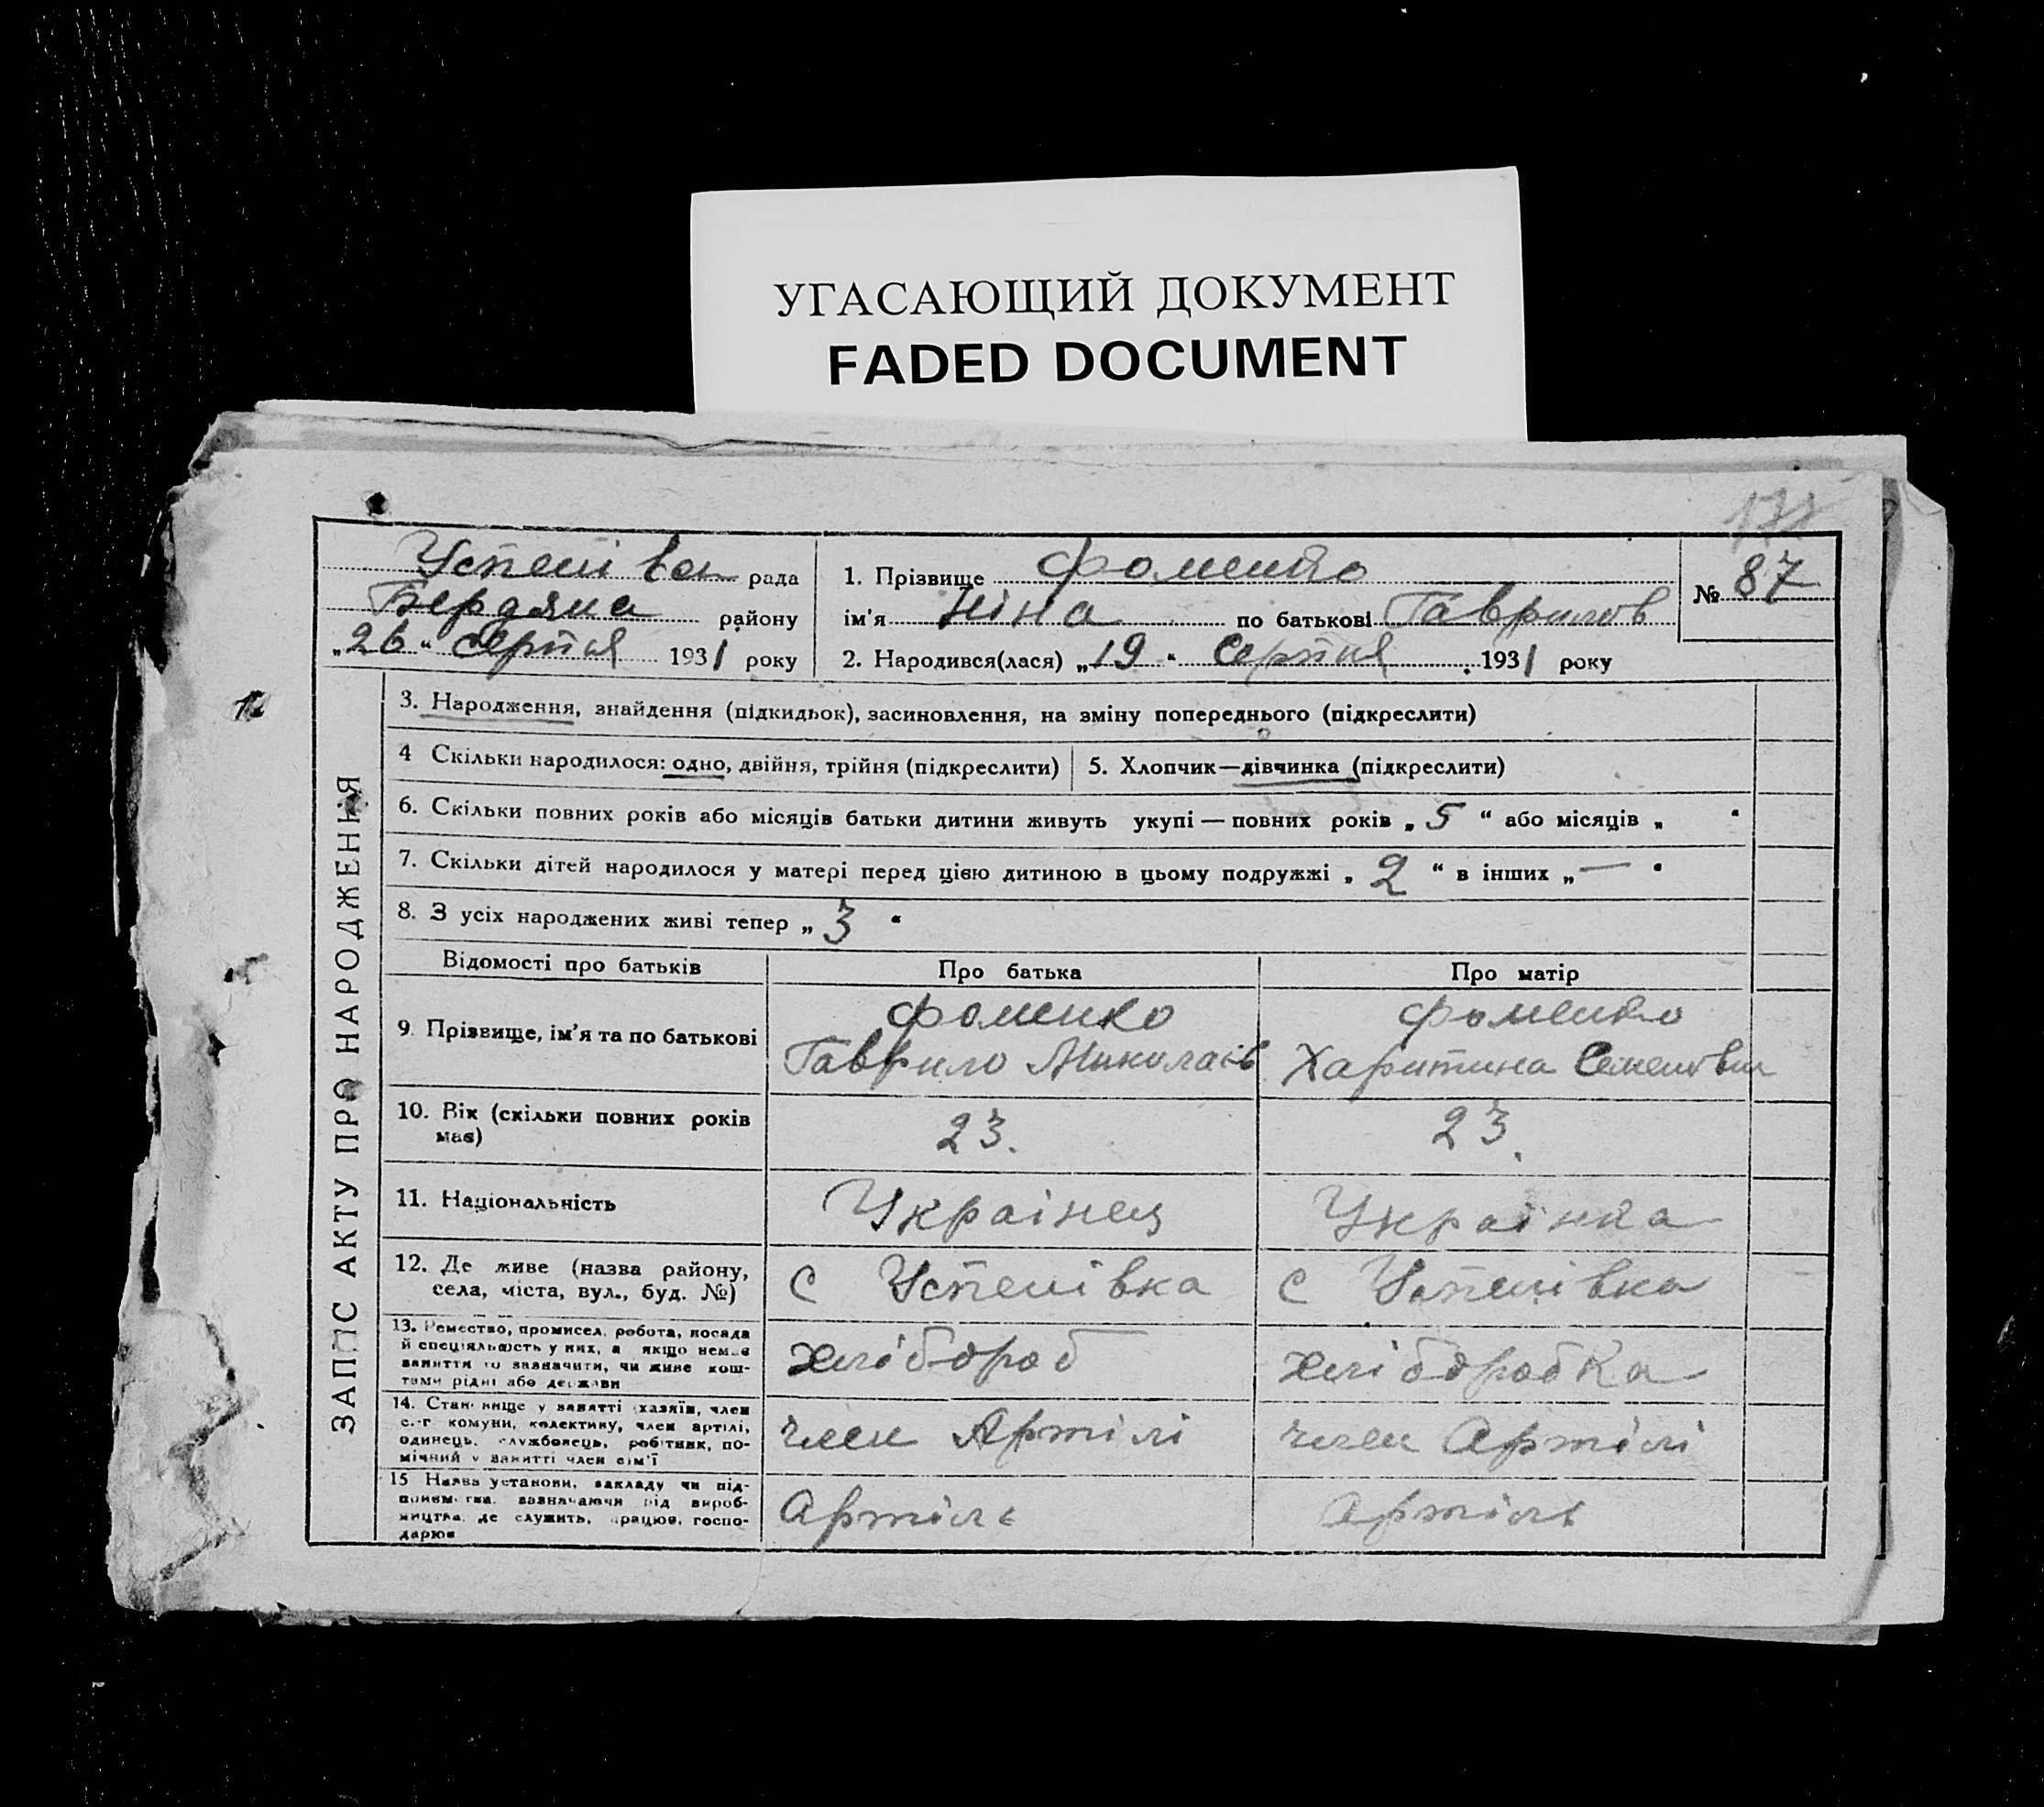 УГАСАЮЩИЙ ДОКУМЕНТ
FADED DOCUMENT
Успенівськ рада
Бердянс району
„26“ серпня 1931 року
1. Прізвище Фоменко
ім'я Ніна по батькові Гаврилов
2. Народився(лася) „19“ Серпня 1931 року
№ 87
ЗАПИС АКТУ ПРО НАРОДЖЕННЯ
3. Народження, знайдення (підкидьок), засиновлення, на зміну попереднього (підкреслити)
4 Скільки народилося: одно, двійня, трійня (підкреслити)
5. Хлопчик—дівчинка (підкреслити)
6. Скільки повних років або місяців батьки дитини живуть укупі — повних років „5“ або місяців „ “
7. Скільки дітей народилося у матері перед цією дитиною в цьому подружжі „2“ в інших „—“
8. З усіх народжених живі тепер „3“
Відомості про батьків Про батька Про матір
9. Прізвище, ім'я та по батькові
Фоменко
Гаврило Миколаїв
Фоменко
Харитина Семенівн
10. Вік (скільки повних років
має)
23.
23.
11. Національність
Украінец
Украінка
12. Де живе (назва району,
села, міста, вул., буд. №)
с Успенівка
с Успенівка
13. Ремество, промисел, робота, посада
й спеціяльність у них, а якщо немає
заняття то зазначити, чи живе кош-
тами рідні або держави
хлібороб
хліборобка
14. Становище у занятті (хазяїн, член
с.-г комуни, колективу, член артілі,
одинець, службовець, робітник, по-
мічний у занятті член сім'ї
член Артілі
член Артілі
15 Назва установи, закладу чи під-
приємства, зазначаючи рід вироб-
ництва, де служить, працює, госпо-
дарює
Артіль
Артіль